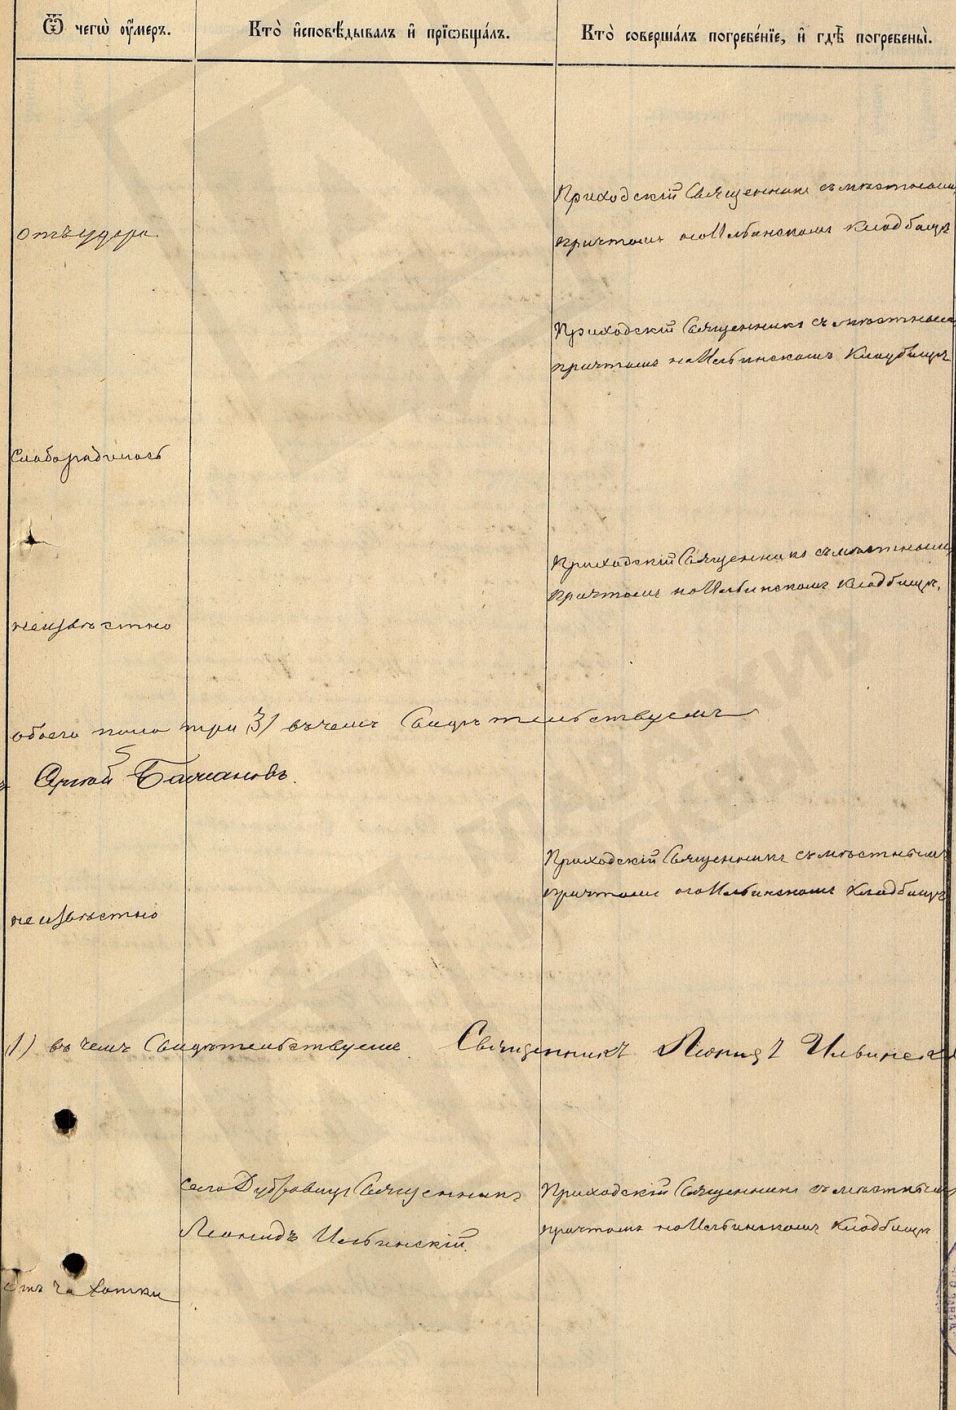 Ѿ чегѡ ᲂу҆́меръ.
Кто̀ и҆сповѣ́дывалъ и҆ прїѡбща́лъ.
Кто̀ соверша́лъ погребе́нїе, и҆ гдѣ̀ погребены̀.
Приходскій Священникъ съ мѣстнымъ
отъ удара
причтомъ на Ильинскомъ кладбищѣ
Приходскій Священникъ съ мѣстнымъ
причтомъ на Ильинскомъ Кладбищѣ
слабородилась
Приходскій Священникъ съ мѣстнымъ
причтомъ на Ильинскомъ кладбищѣ.
неизвѣстно
обоего пола три (3) въ чемъ Свидѣтельствуемъ
Приходскій Священникъ съ мѣстнымъ
причтомъ на Ильинскомъ Кладбищѣ
неизвѣстно
(1) въ чемъ Свидѣтельствуемъ Священникъ Леонидъ Ильинскій
села Дубровицъ Священникъ
Леонидъ Ильинскій.
Приходскій Священникъ съ мѣстнымъ
причтомъ на Ильинскомъ Кладбищѣ
Отъ чахотки
ГЛАВАРХИВ